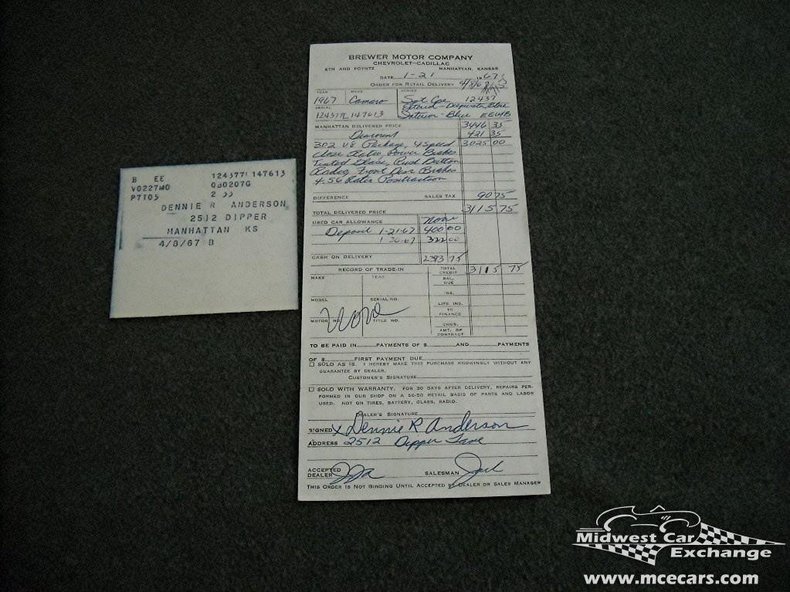 BREWER MOTOR COMPANY
CHEVROLET-CADILLAC
4TH AND POYNTZ MANHATTAN, KANSAS
DATE 1-21 1967
ORDER FOR RETAIL DELIVERY
YEAR MAKE
1967 Camaro Spt Cpe 12437
SERIAL
124377L 147613 Interior - Blue
MANHATTAN DELIVERED PRICE 3446 35
Discount 421 35
302 V8 Package, 4 Speed 3025 00
Close Ratio Power Brakes
Tinted Glass, Push Button
Radio, Front Disc Brakes
4.56
DIFFERENCE SALES TAX 90 75
TOTAL DELIVERED PRICE 3115 75
USED CAR ALLOWANCE None
Deposit 1-21-67 400 00
322 00
CASH ON DELIVERY 2393 75
RECORD OF TRADE-IN TOTAL CREDIT 3115 75
MAKE YEAR BAL. DUE
INS.
MODEL SERIAL NO. LIFE INS.
TO FINANCE
MOTOR NO. TITLE NO. CHGS.
None
AMT. OF CONTRACT
TO BE PAID IN PAYMENTS OF $ AND PAYMENTS
OF $ FIRST PAYMENT DUE
SOLD AS IS. I HEREBY MAKE THIS PURCHASE KNOWINGLY WITHOUT ANY
GUARANTEE BY DEALER.
CUSTOMER'S SIGNATURE
SOLD WITH WARRANTY. FOR 30 DAYS AFTER DELIVERY, REPAIRS PER-
FORMED IN OUR SHOP ON A 50-50 RETAIL BASIS OF PARTS AND LABOR
USED. NOT ON TIRES, BATTERY, GLASS, RADIO.
DEALER'S SIGNATURE
SIGNED X Dennie R Anderson
ADDRESS 2512 Dipper Lane
ACCEPTED
DEALER SALESMAN
THIS ORDER IS NOT BINDING UNTIL ACCEPTED BY DEALER OR SALES MANAGER
B EE 124377L147613
V0227MO
PT105 2
DENNIE R ANDERSON
2512 DIPPER
MANHATTAN KS
4/8/67 B
Midwest Car
Exchange
www.mcecars.com